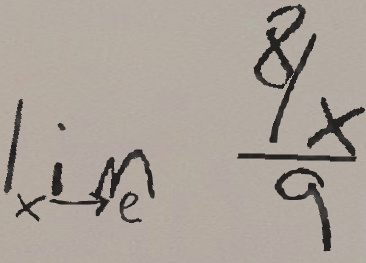 lim_{x→e} \frac{8/x}{9}